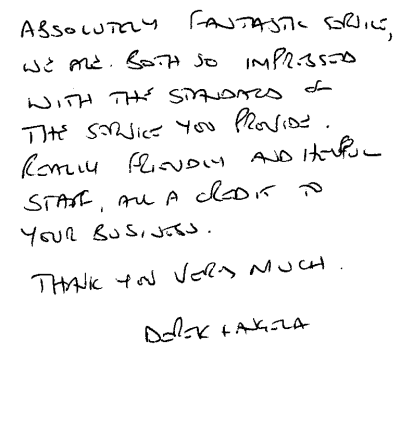 ABSOLUTELY FANTASTIC SERVICE,
WE ARE. BOTH SO IMPRESSED
WITH THE STANDARDS OF
THE SERVICE YOU PROVIDE.
REALLY FRIENDLY AND HELPFUL
STAFF, ALL A CREDIT TO
YOUR BUSINESS.
THANK YOU VERY MUCH.
DEREK + ANGELA